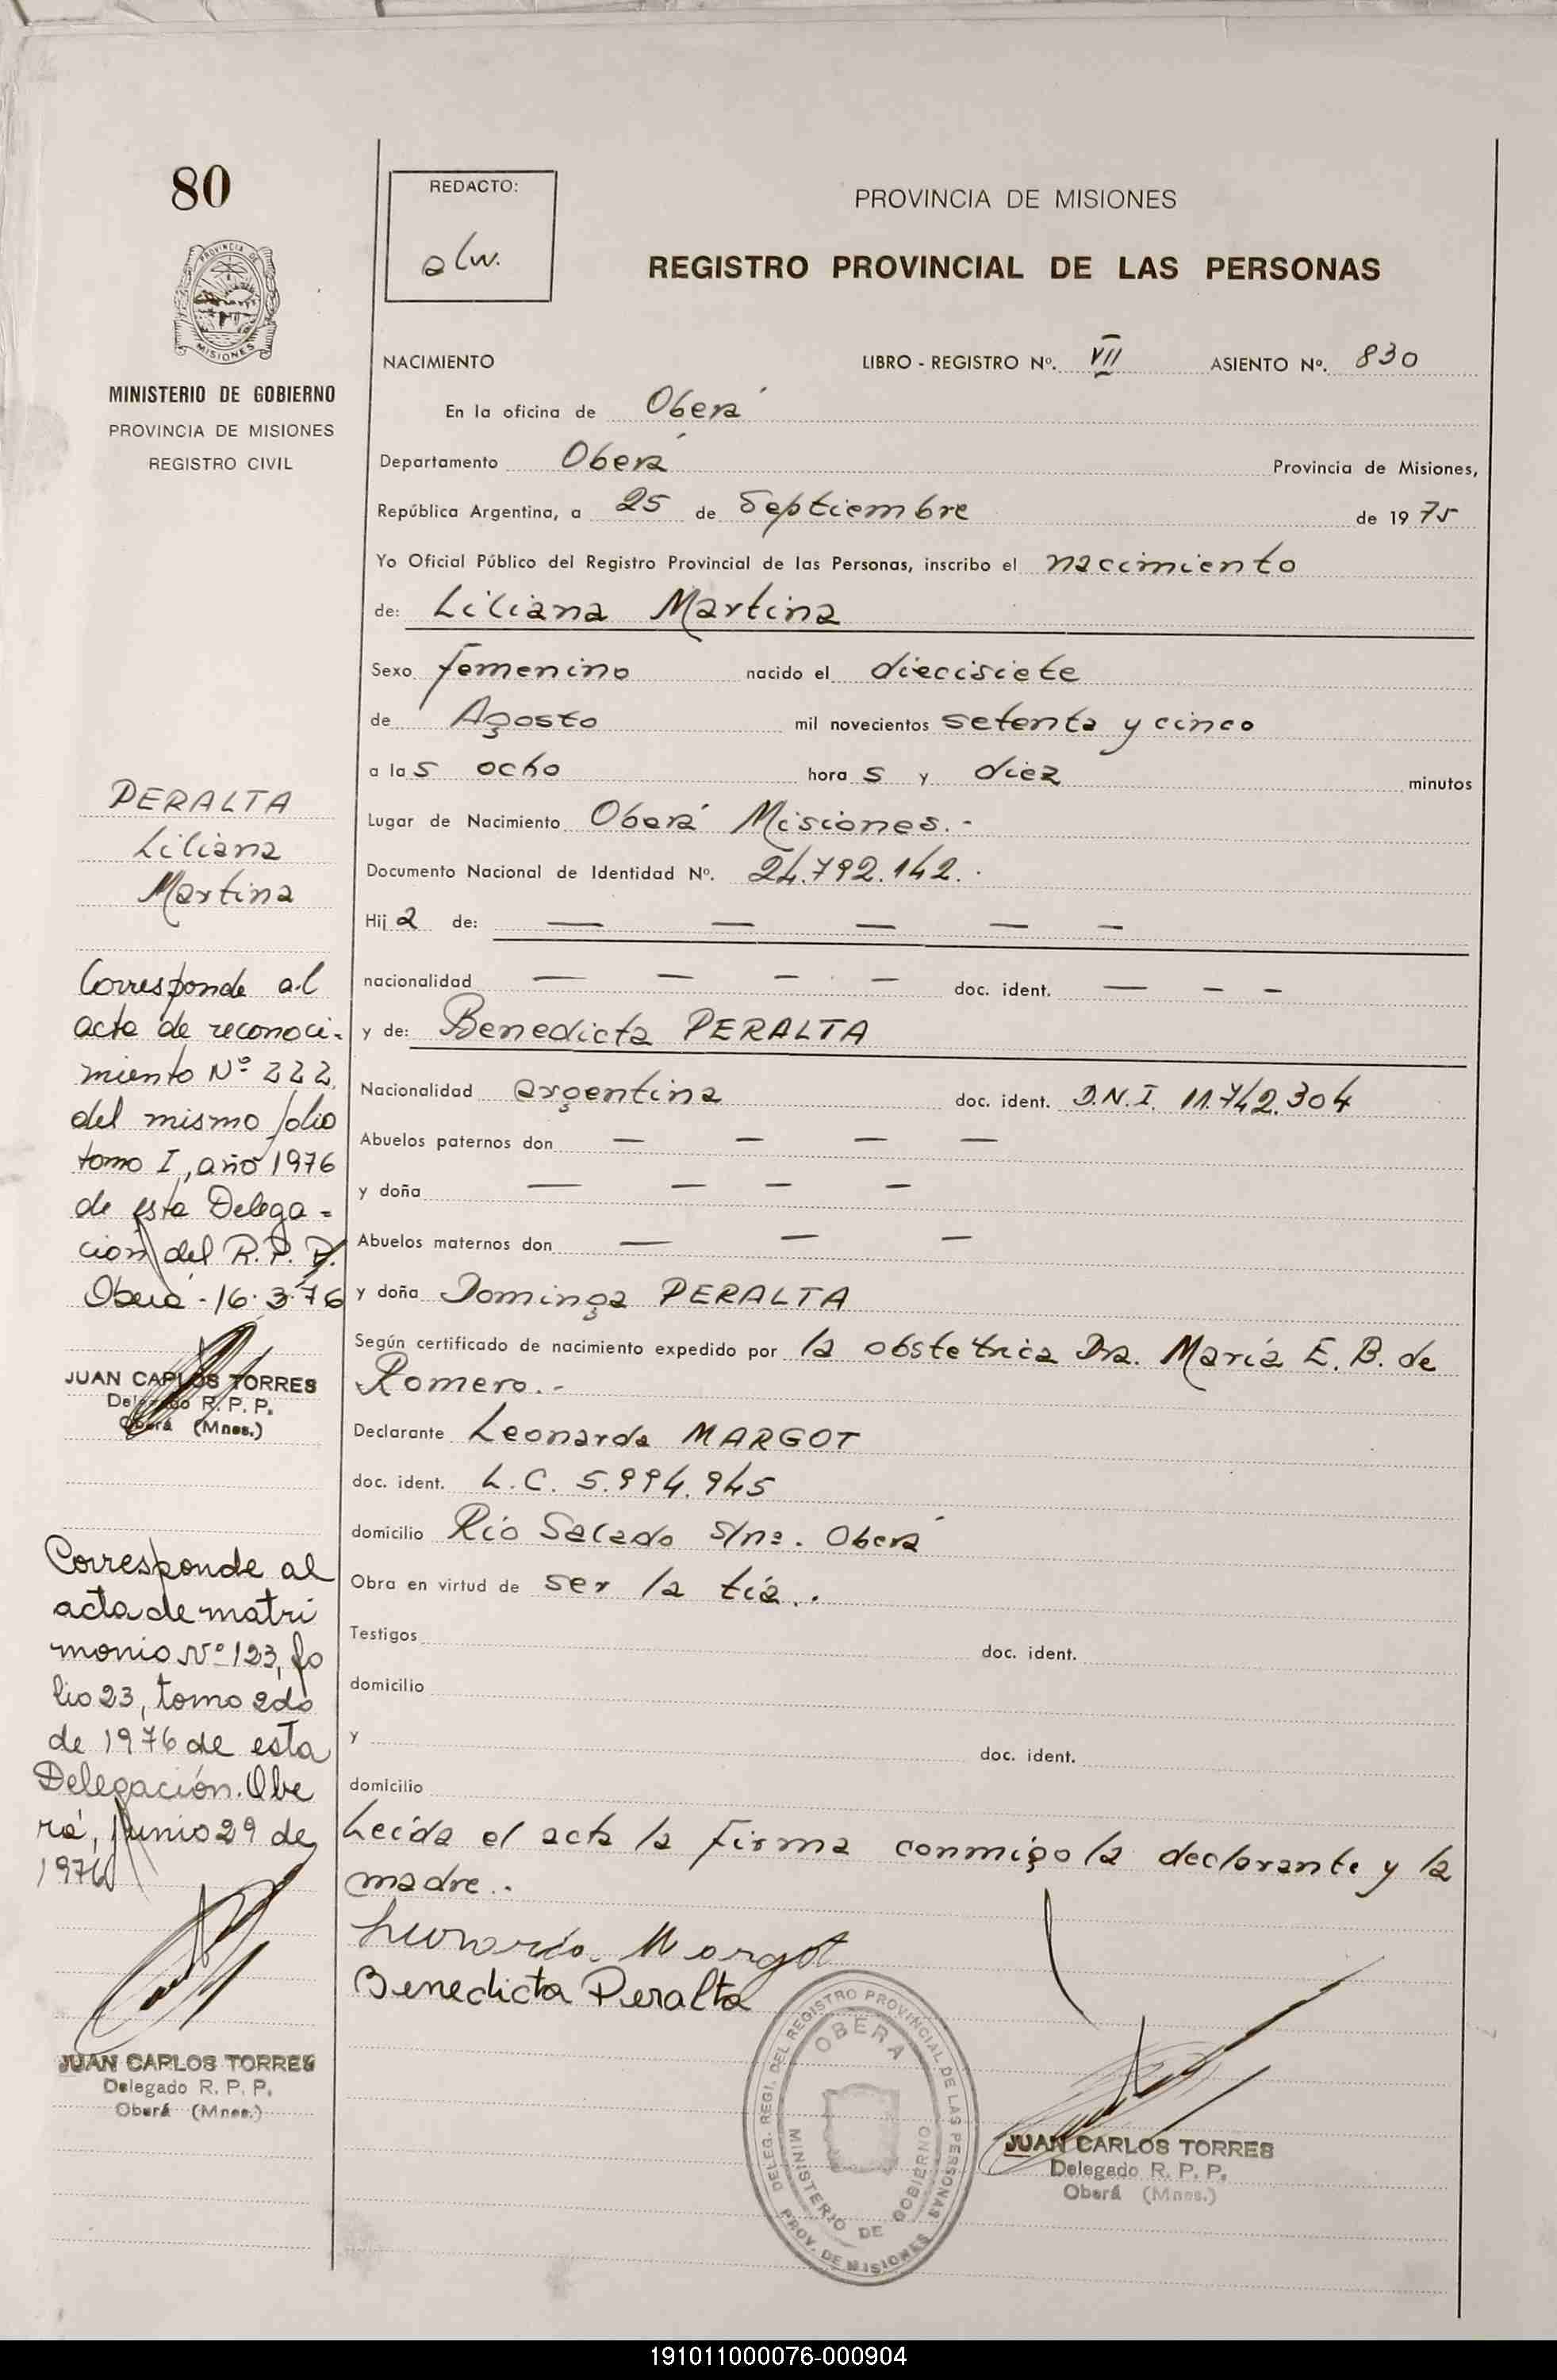 80
PROVINCIA DE
MISIONES
MINISTERIO DE GOBIERNO
PROVINCIA DE MISIONES
REGISTRO CIVIL
REDACTO:
alw.
PROVINCIA DE MISIONES
REGISTRO PROVINCIAL DE LAS PERSONAS
NACIMIENTO LIBRO - REGISTRO Nº. VII ASIENTO Nº. 830
En la oficina de Oberá
Departamento Oberá Provincia de Misiones,
República Argentina, a 25 de Septiembre de 1975
Yo Oficial Público del Registro Provincial de las Personas, inscribo el nacimiento
de: Liliana Martina
Sexo femenino nacido el diecisiete
de Agosto mil novecientos setenta y cinco
a las ocho horas y diez minutos
Lugar de Nacimiento Oberá Misiones.-
Documento Nacional de Identidad Nº. 24.792.142.
Hija de: — — — — —
nacionalidad — — - — doc. ident. — - -
y de: Benedicta PERALTA
Nacionalidad argentina doc. ident. D.N.I. 11.742.304
Abuelos paternos don — — — —
y doña — — — —
Abuelos maternos don — — —
y doña Dominga PERALTA
Según certificado de nacimiento expedido por la obstetrica Dra. María E. B. de
Romero.-
Declarante Leonarda MARGOT
doc. ident. L.C. 5.994.945
domicilio Rio Salado s/nº. Oberá
Obra en virtud de ser la tía..
Testigos doc. ident.
domicilio
y doc. ident.
domicilio
Leída el acta la firma conmigo la declarante y la
madre.-
Margot
Benedicta Peralta
DELEG. REGI. DEL REGISTRO PROVINCIAL DE LAS PERSONAS
OBERA
MINISTERIO DE GOBIERNO
PROV. DE MISIONES
JUAN CARLOS TORRES
Delegado R. P. P.
Oberá (Mnes.)
PERALTA
Liliana
Martina
Corresponde al
acta de reconoci-
miento Nº 222
del mismo folio
tomo I, año 1976
de esta Delega=
ción del R.P.P.
Oberá-16.3.76
JUAN CARLOS TORRES
Delegado R. P. P.
Oberá (Mnes.)
Corresponde al
acta de matri
monio Nº 123, fo
lio 23, tomo 2do
de 1976 de esta
Delegación. Obe
rá, Junio 29 de
1976
JUAN CARLOS TORRES
Delegado R. P. P.
Oberá (Mnes.)
191011000076-000904